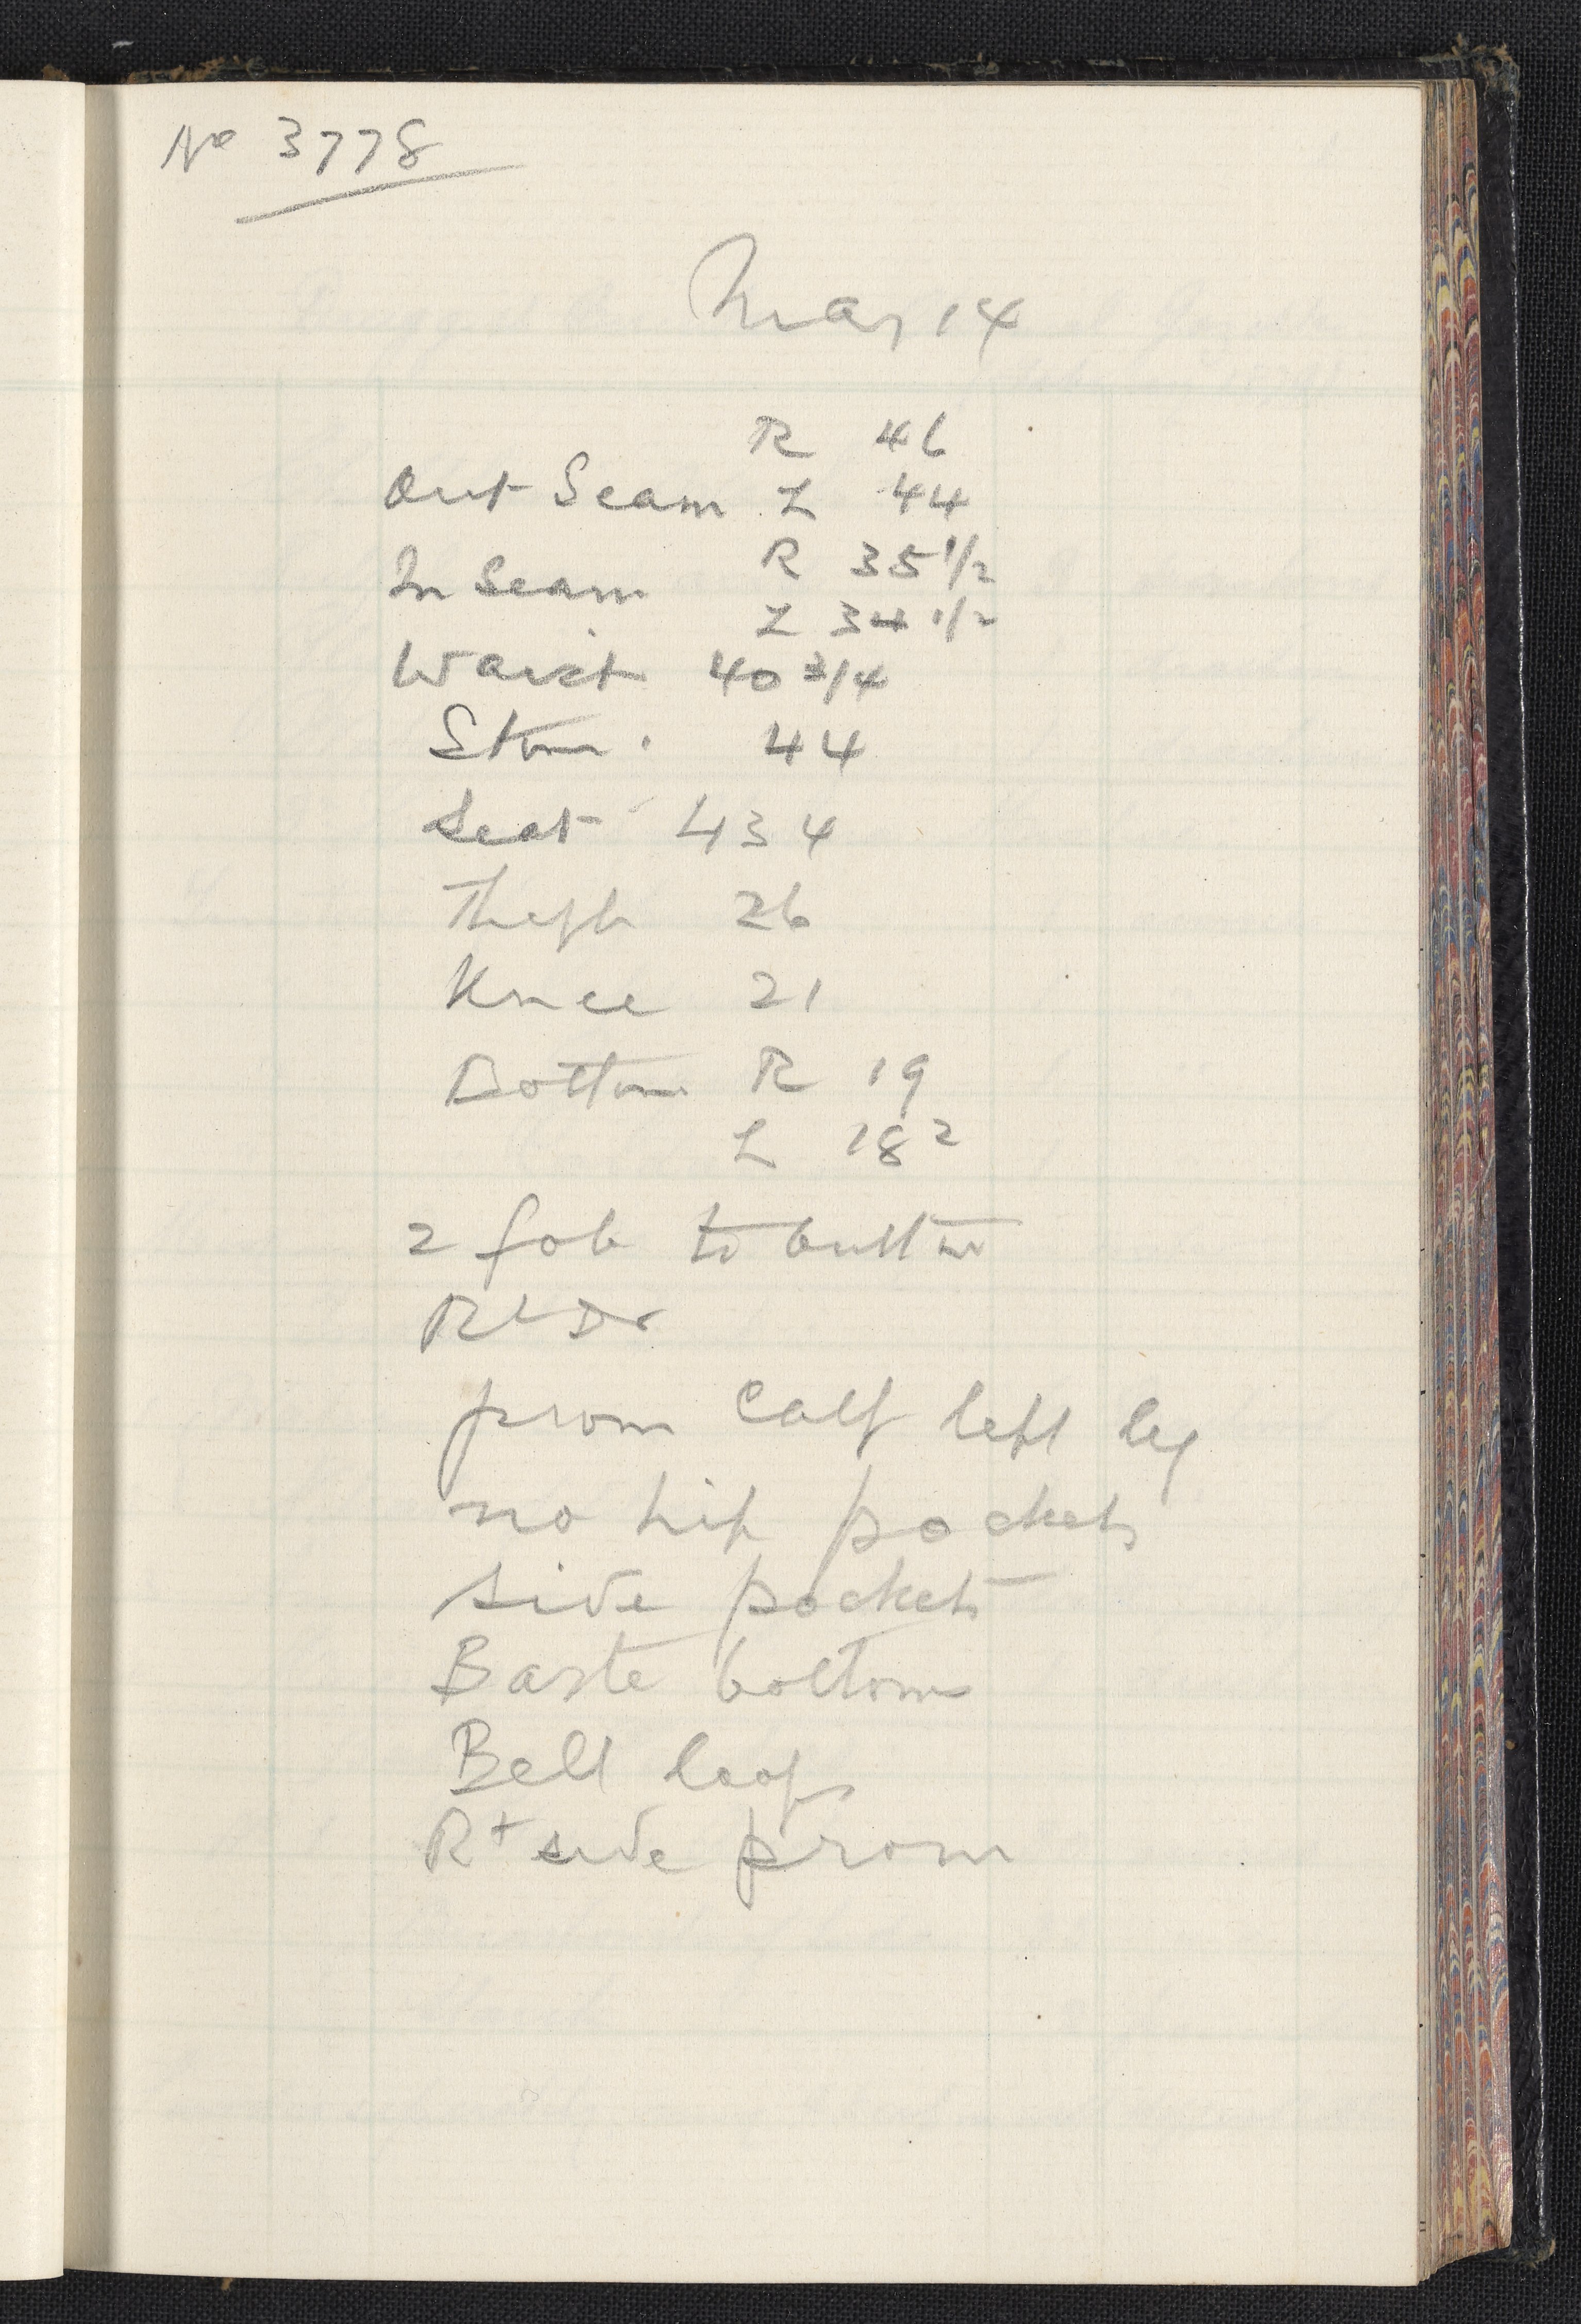 No 3778
Mar 14
R 46
Out Seam L 44
R 35 1/2
In Seam
L 34 1/2
Waist 40 3/4
Stom. 44
Seat 43 4
Thigh 26
Knee 21
Bottom R 19
L 18 2
2 fob to button
R L Dr
prom Calf left leg
no hip pockets
side pockets
Baste bottoms
Belt loops
Rt side prom